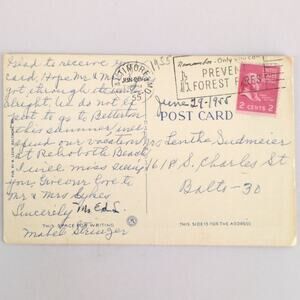 Glad to receive your
card. Hope Mr & Mrs
got through
alright. We do not ex
pect to go to
this summer, will
spend our vacation
at Rehoboth Beach
I will miss seeing
you. Give our love to
Mr & Mrs Sykes
Sincerely
Mabel Stringer
THIS SPACE FOR WRITING
BALTIMORE, MD.
1955
1955
Remember - Only you can
PREVENT
FOREST FIRES
2 CENTS 2
June 29-1955
POST CARD
Mrs Lentha Sudmeier
1618 S. Charles St
Balto - 30
THIS SIDE IS FOR THE ADDRESS